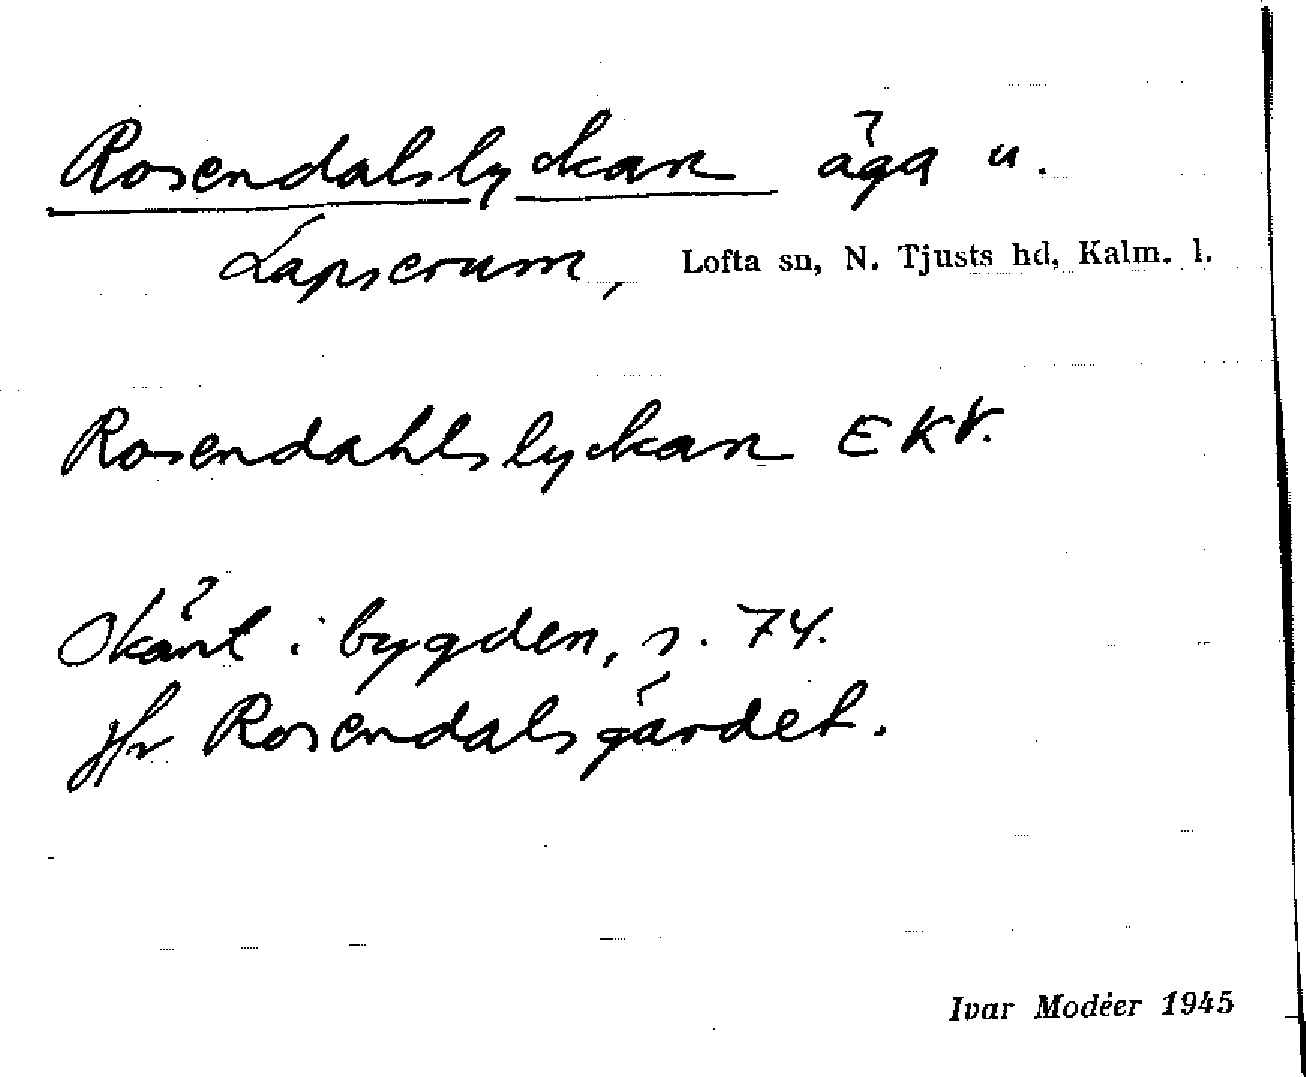 Rosendalslyckan äga u.
Lapserum, Lofta sn, N. Tjusts hd, Kalm. l.
Rosendahlslyckan EKV.
Okänt i bygden, s. 74.
Jfr Rosendalsgärdet.
Ivar Modéer 1945